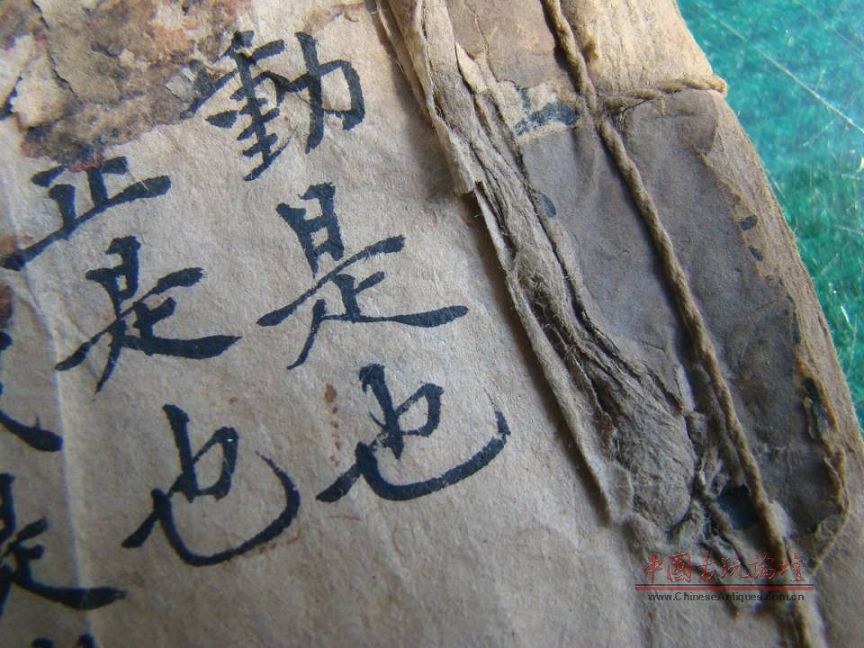 動是也
正是也
是
中國古玩論壇
www.ChineseAntiques.com.cn